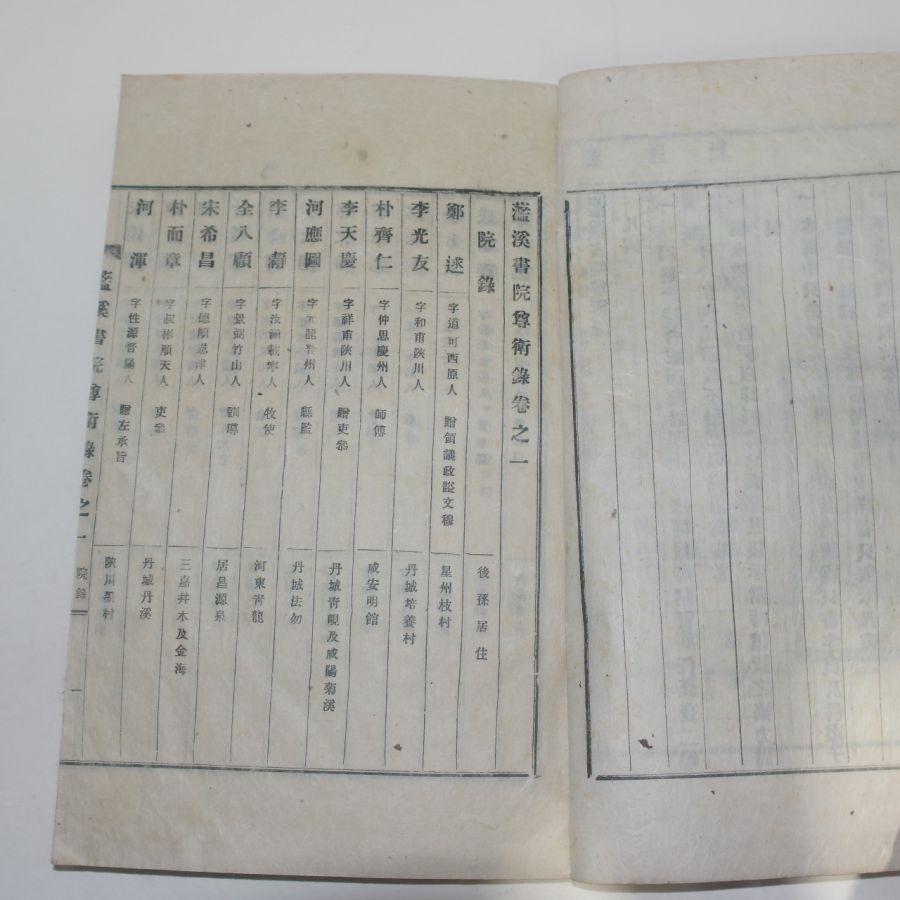 藍溪書院尊衛錄卷之一
院錄 後孫居住
鄭逑 字道可西原人 贈領議政諡文穆 星州枝村
李光友 字和甫陜川人 丹城培養村
朴齊仁 字仲思慶州人 師傅 咸安明館
李天慶 字祥甫陜川人 贈吏參 丹城靑峴及咸陽菊溪
河應圖 字元龍晉州人 縣監 丹城法勿
李瀞 字汝涵載寧人 牧使 河東靑龍
全八顧 字景弼竹山人 訓導 居昌源泉
宋希昌 字德順恩津人 三嘉井木及金海
朴而章 字叔彬順天人 吏參 丹城丹溪
河渾 字性源晉陽人 贈左承旨 陜川星村
藍溪書院尊衛錄卷之一 院錄 一